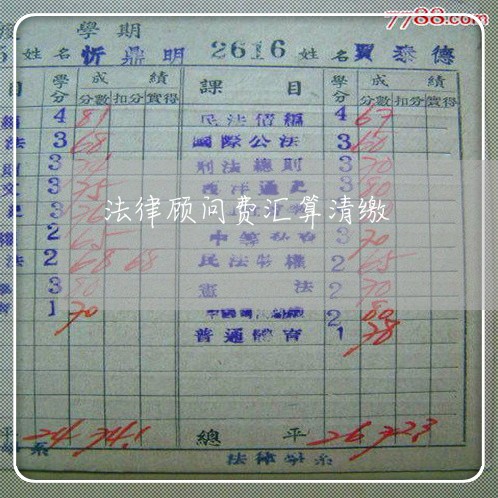 7788.com
學期
5 姓名 忻鼎明 2616 姓名 賈泰德
目 學分 成績 課目 學分 成績
分數 扣分 實得 分數 扣分 實得
4 81 民法債編 4 67
法 3 68 國際公法 3 60
3 刑法總則 3 70
文 3 75 西洋通史 3 80
3
權 2 65 3 70
法 2 68 68 民法物權 2 65
3 80 憲法 2 70
育 1 70 2 80
普通體育 1 78
法律顾问费汇算清缴
24 74.1 總平 26 72.3
系 法律學系